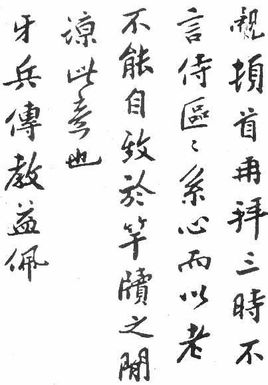 覿頓首再拜三時不
言侍區〻系心而以老
不能自致於竿牘之間
諒此意也
牙兵傳教益佩